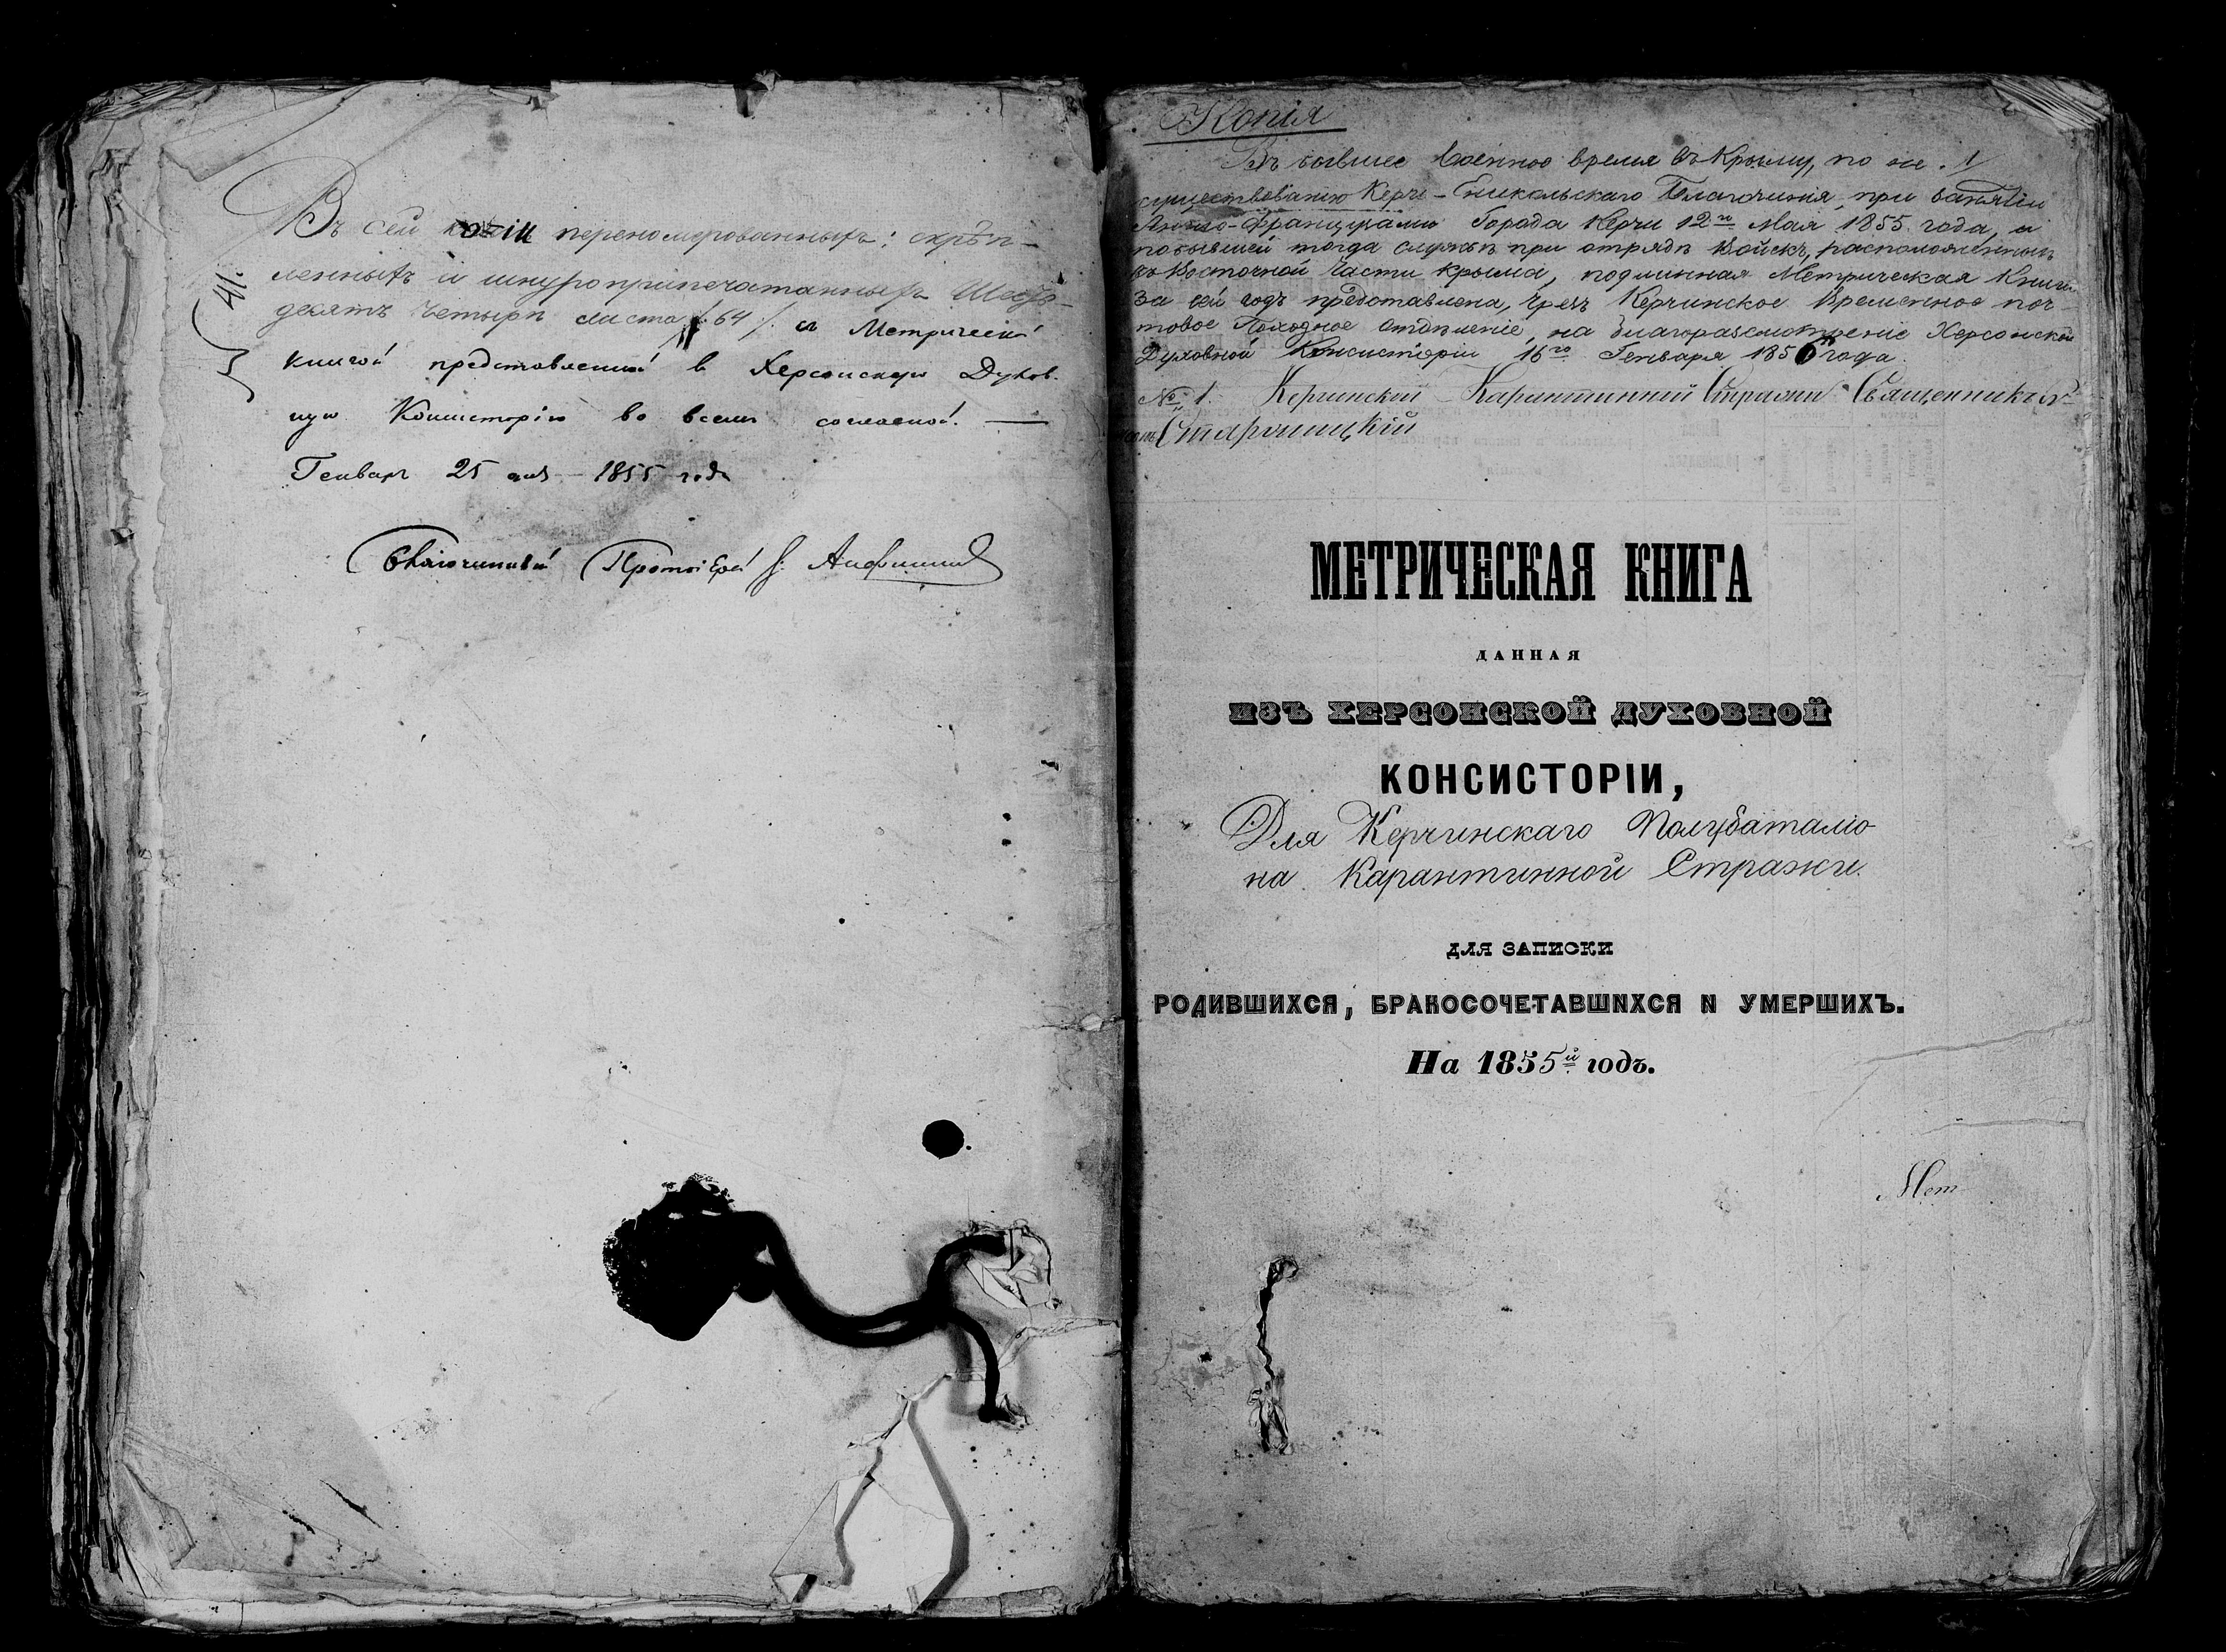 41.
Въ сей копіи переномерованныхъ: скрѣп-
ленныхъ и шнуроприпечатанныхъ Шесть-
десятъ четыре листа /:64:/ съ Метрической
книгой представленной въ Херсонскую Духов-
ную Консисторію во всемъ согласно. —
Генваря 25 дня – 1855 года
Благочинный Протоіерей
Копія
Въ бывшее военное время въ Крыму, по не- 1
существованію Керчь-Еникольскаго Благочинія, при занятіи
Англо-Французами Города Керчи 12го Мая 1855 года, и
по бывшей тогда службѣ при отрядѣ Войскъ, расположенныхъ
въ Восточной Части Крыма, подлинная Метрическая Книга
За сей годъ представлена, чрезъ Керчинское Временное поч-
товое Походное Отдѣленіе, на благоразсмотреніе Херсонской
Духовной Консисторіи 16го Генваря 1856 года.
№ 1. Керчинской Карантинной Стражи Священникъ
Старчицкій
МЕТРИЧЕСКАЯ КНИГА
ДАННАЯ
ИЗЪ ХЕРСОНСКОЙ ДУХОВНОЙ
КОНСИСТОРІИ,
Для Керчинскаго Полубаталіо-
на Карантинной Стражи.
ДЛЯ ЗАПИСКИ
РОДИВШИХСЯ, БРАКОСОЧЕТАВШИХСЯ И УМЕРШИХЪ.
На 1855й годъ.
Мет